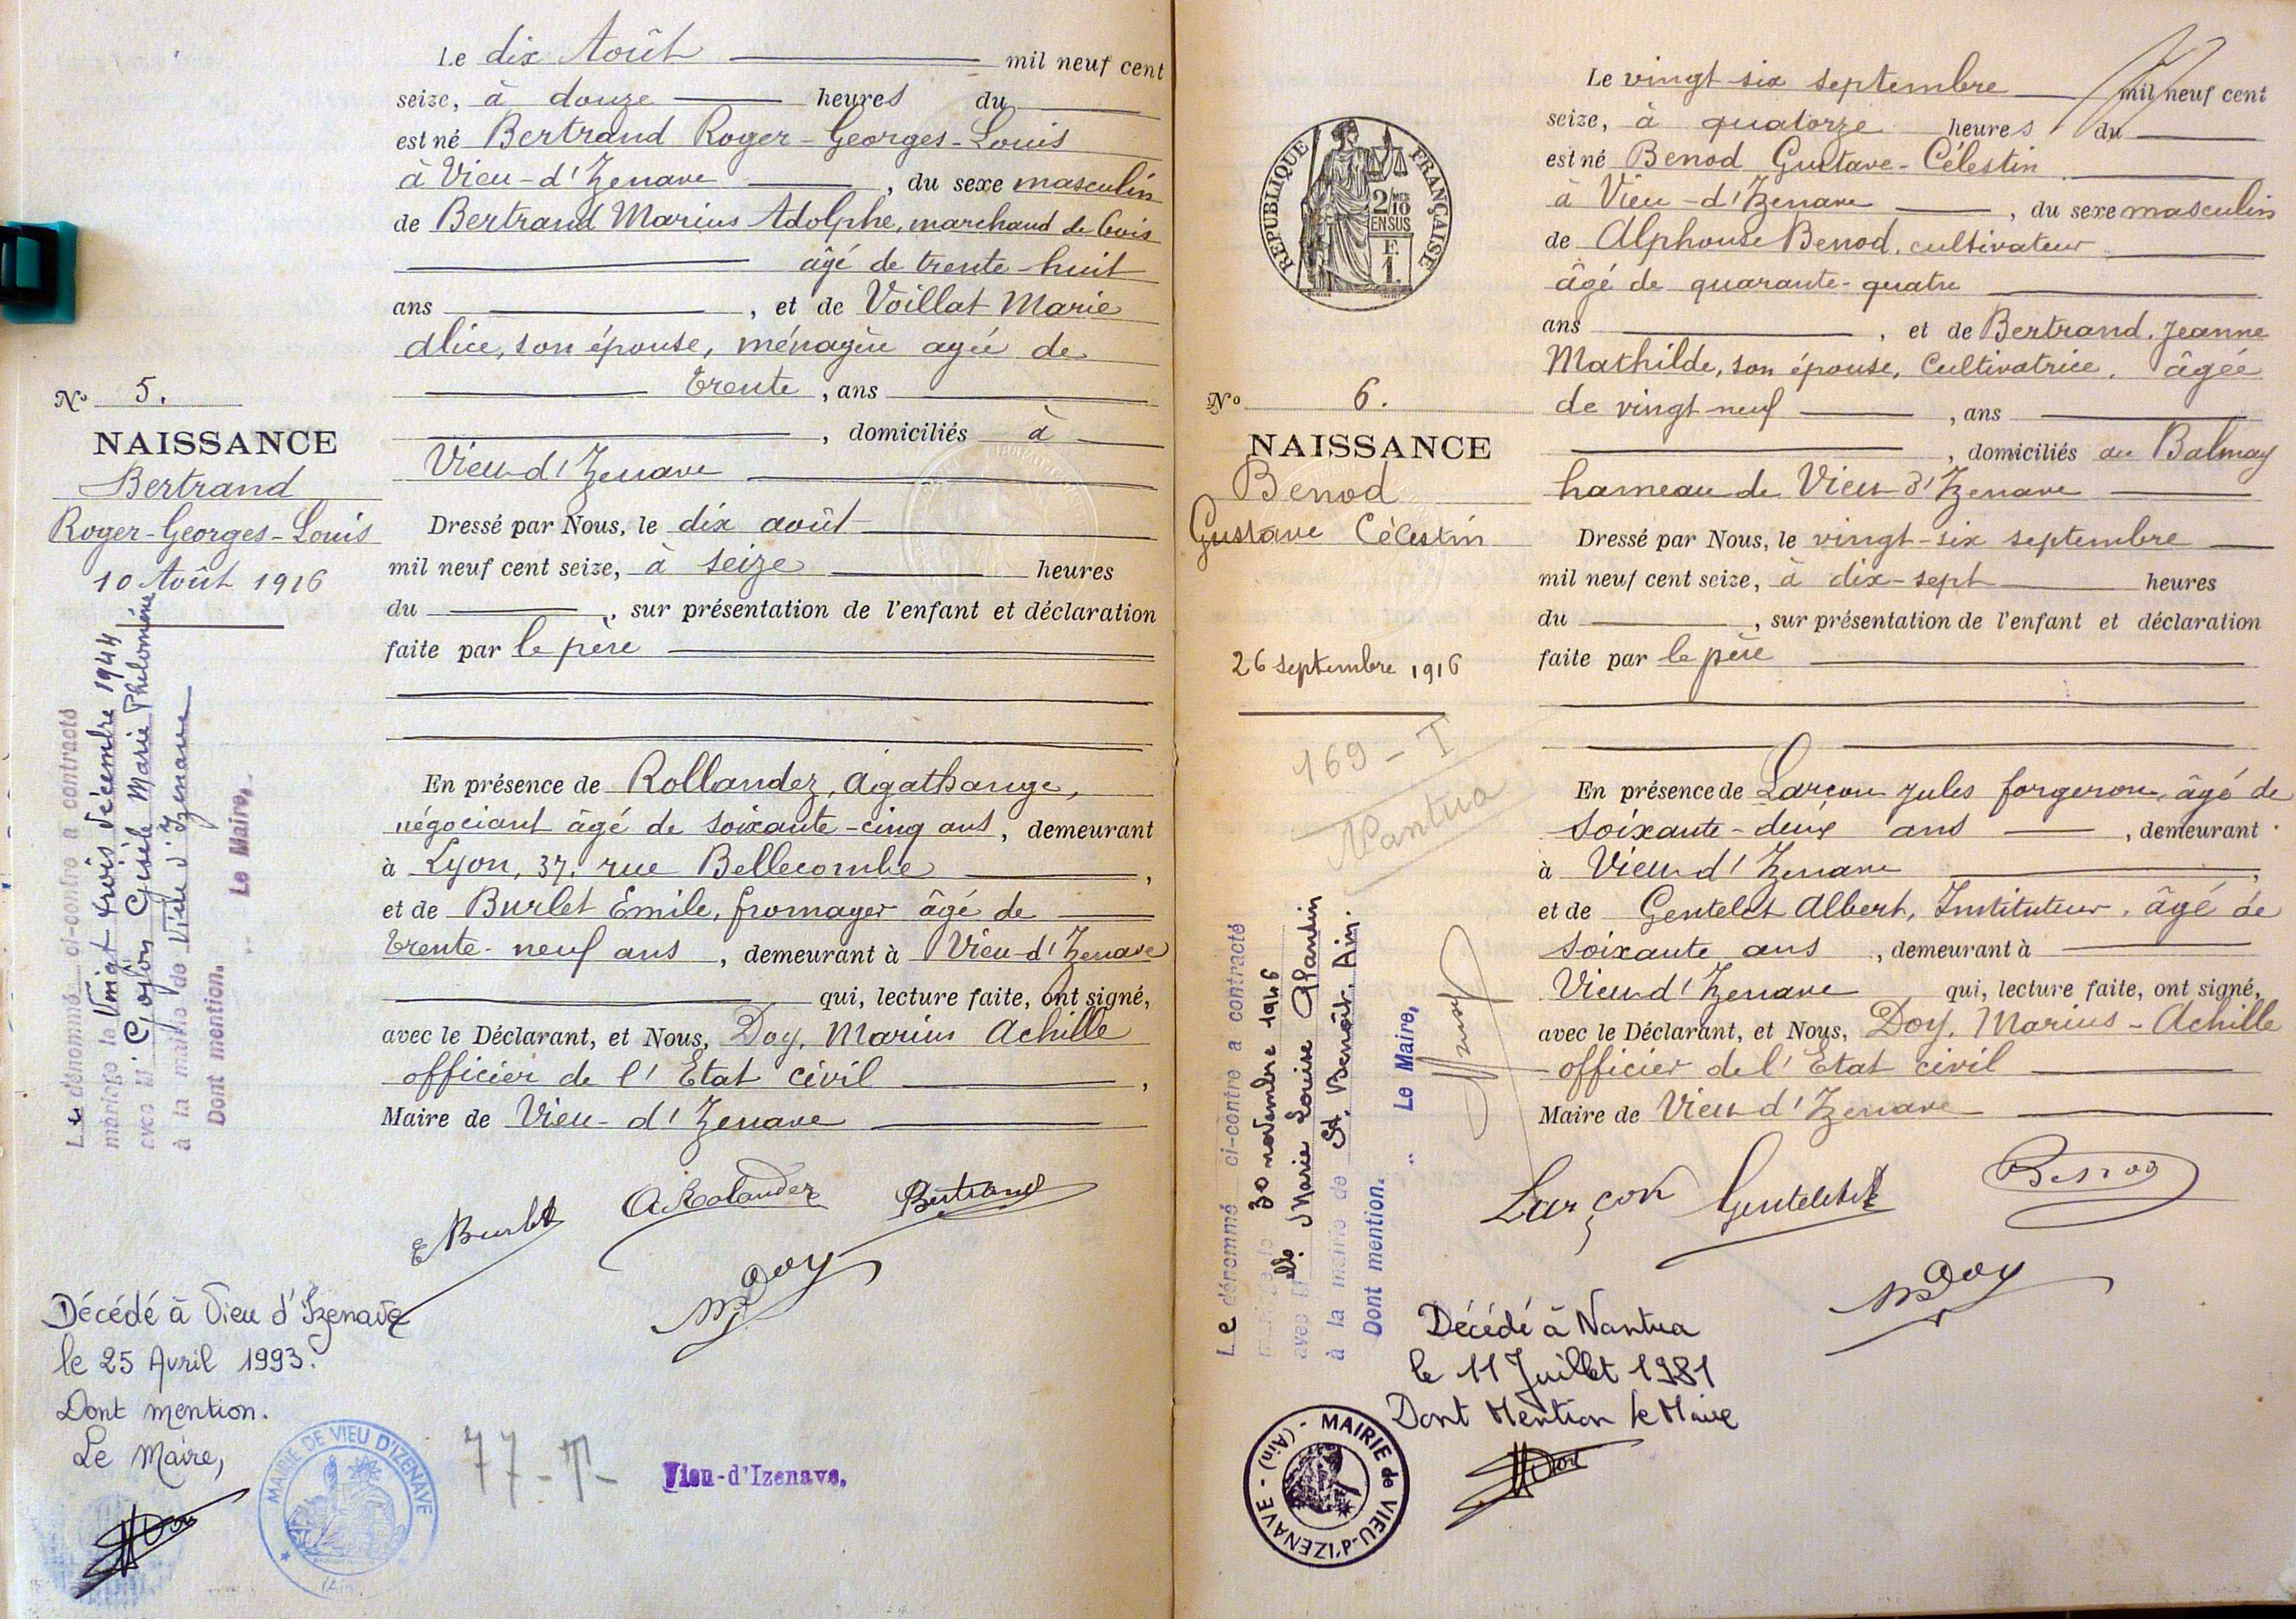 Le dix Août mil neuf cent
seize, à douze heures du
est né Bertrand Roger-Georges-Louis
à Vieu-d'Izenave, du sexe masculin
de Bertrand Marius Adolphe, marchand de bois
âgé de trente-huit
ans, et de Voillat Marie
Alice, son épouse, ménagère agée de
trente, ans
, domiciliés à
Vieu d'Izenave
Dressé par Nous, le dix août
mil neuf cent seize, à seize heures
du, sur présentation de l'enfant et déclaration
faite par le père
En présence de Rollandez, Agathange,
négociant âgé de soixante-cinq ans, demeurant
à Lyon, 37, rue Bellecombe,
et de Burlet Emile, fromager âgé de
trente-neuf ans, demeurant à Vieu-d'Izenave
qui, lecture faite, ont signé,
avec le Déclarant, et Nous, Doy, Marius Achille
officier de l'Etat civil,
Maire de Vieu-d'Izenave
E Burlet
A. Rolandez
Bertrand
M Doy
No 5.
NAISSANCE
Bertrand
Roger-Georges-Louis
10 Août 1916
Le dénommé ci-contre a contracté
mariage le Vingt trois décembre 1944
avec M Gisèle Marie Philomène
à la mairie de Vieu d'Izenave
Dont mention.
Le Maire,
Décédé à Vieu d'Izenave
le 25 Avril 1993.
Dont mention.
Le Maire,
MAIRIE DE VIEU D'IZENAVE
(Ain)
77-T-
Vieu-d'Izenave.
Le vingt-six septembre mil neuf cent
seize, à quatorze heures du
est né Benod Gustave-Célestin
à Vieu-d'Izenave, du sexe masculin
de Alphonse Benod, cultivateur
âgé de quarante-quatre
ans, et de Bertrand, Jeanne
Mathilde, son épouse, Cultivatrice, âgée
de vingt neuf, ans
, domiciliés au Balmay
hameau de Vieu d'Izenave
Dressé par Nous, le vingt-six septembre
mil neuf cent seize, à dix-sept heures
du, sur présentation de l'enfant et déclaration
faite par le père
En présence de Larçon Jules forgeron, âgé de
soixante-deux ans, demeurant
à Vieu d'Izenave,
et de Gentelet Albert, Instituteur, âgé de
soixante ans, demeurant à
Vieu d'Izenave qui, lecture faite, ont signé,
avec le Déclarant, et Nous, Doy, Marius-Achille
officier de l'Etat civil
Maire de Vieu d'Izenave
Larçon
Gentelet
Benod
M Doy
REPUBLIQUE FRANÇAISE
2/10 MES
EN SUS
F.
1.
No 6.
NAISSANCE
Benod
Gustave Célestin
26 septembre 1916
169-T
Nantua
Le dénommé ci-contre a contracté
mariage le 30 novembre 1946
avec Melle Marie Louise Plantin
à la mairie de St. Benoît. Ain.
Dont mention.
Le Maire,
Décédé à Nantua
le 11 Juillet 1981
Dont Mention le Maire
MAIRIE de VIEU-d'IZENAVE - (Ain) -